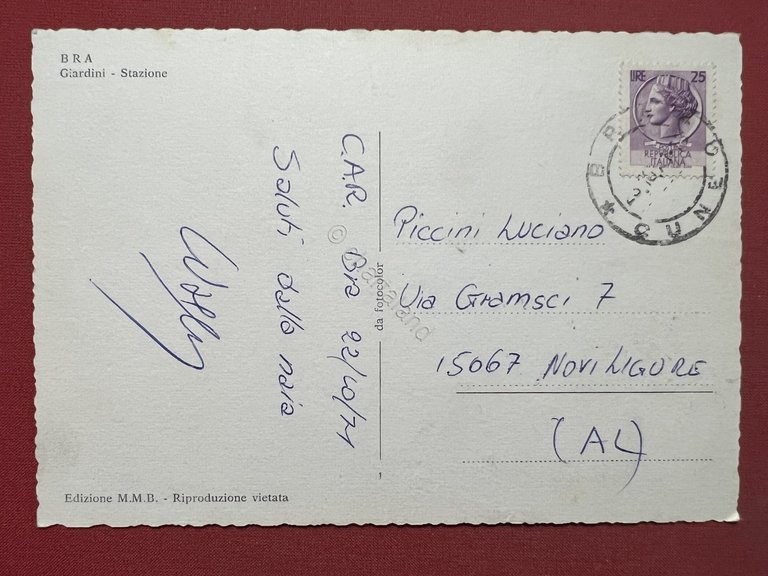 BRA
Giardini - Stazione
LIRE 25
REPVBBLICA
ITALIANA
CUNEO
C.A.R. Bra 22/10/71
Saluti dalla naia
da fotocolor
Piccini Luciano
Via Gramsci 7
15067 NOVI LIGURE
(AL)
Edizione M.M.B. - Riproduzione vietata